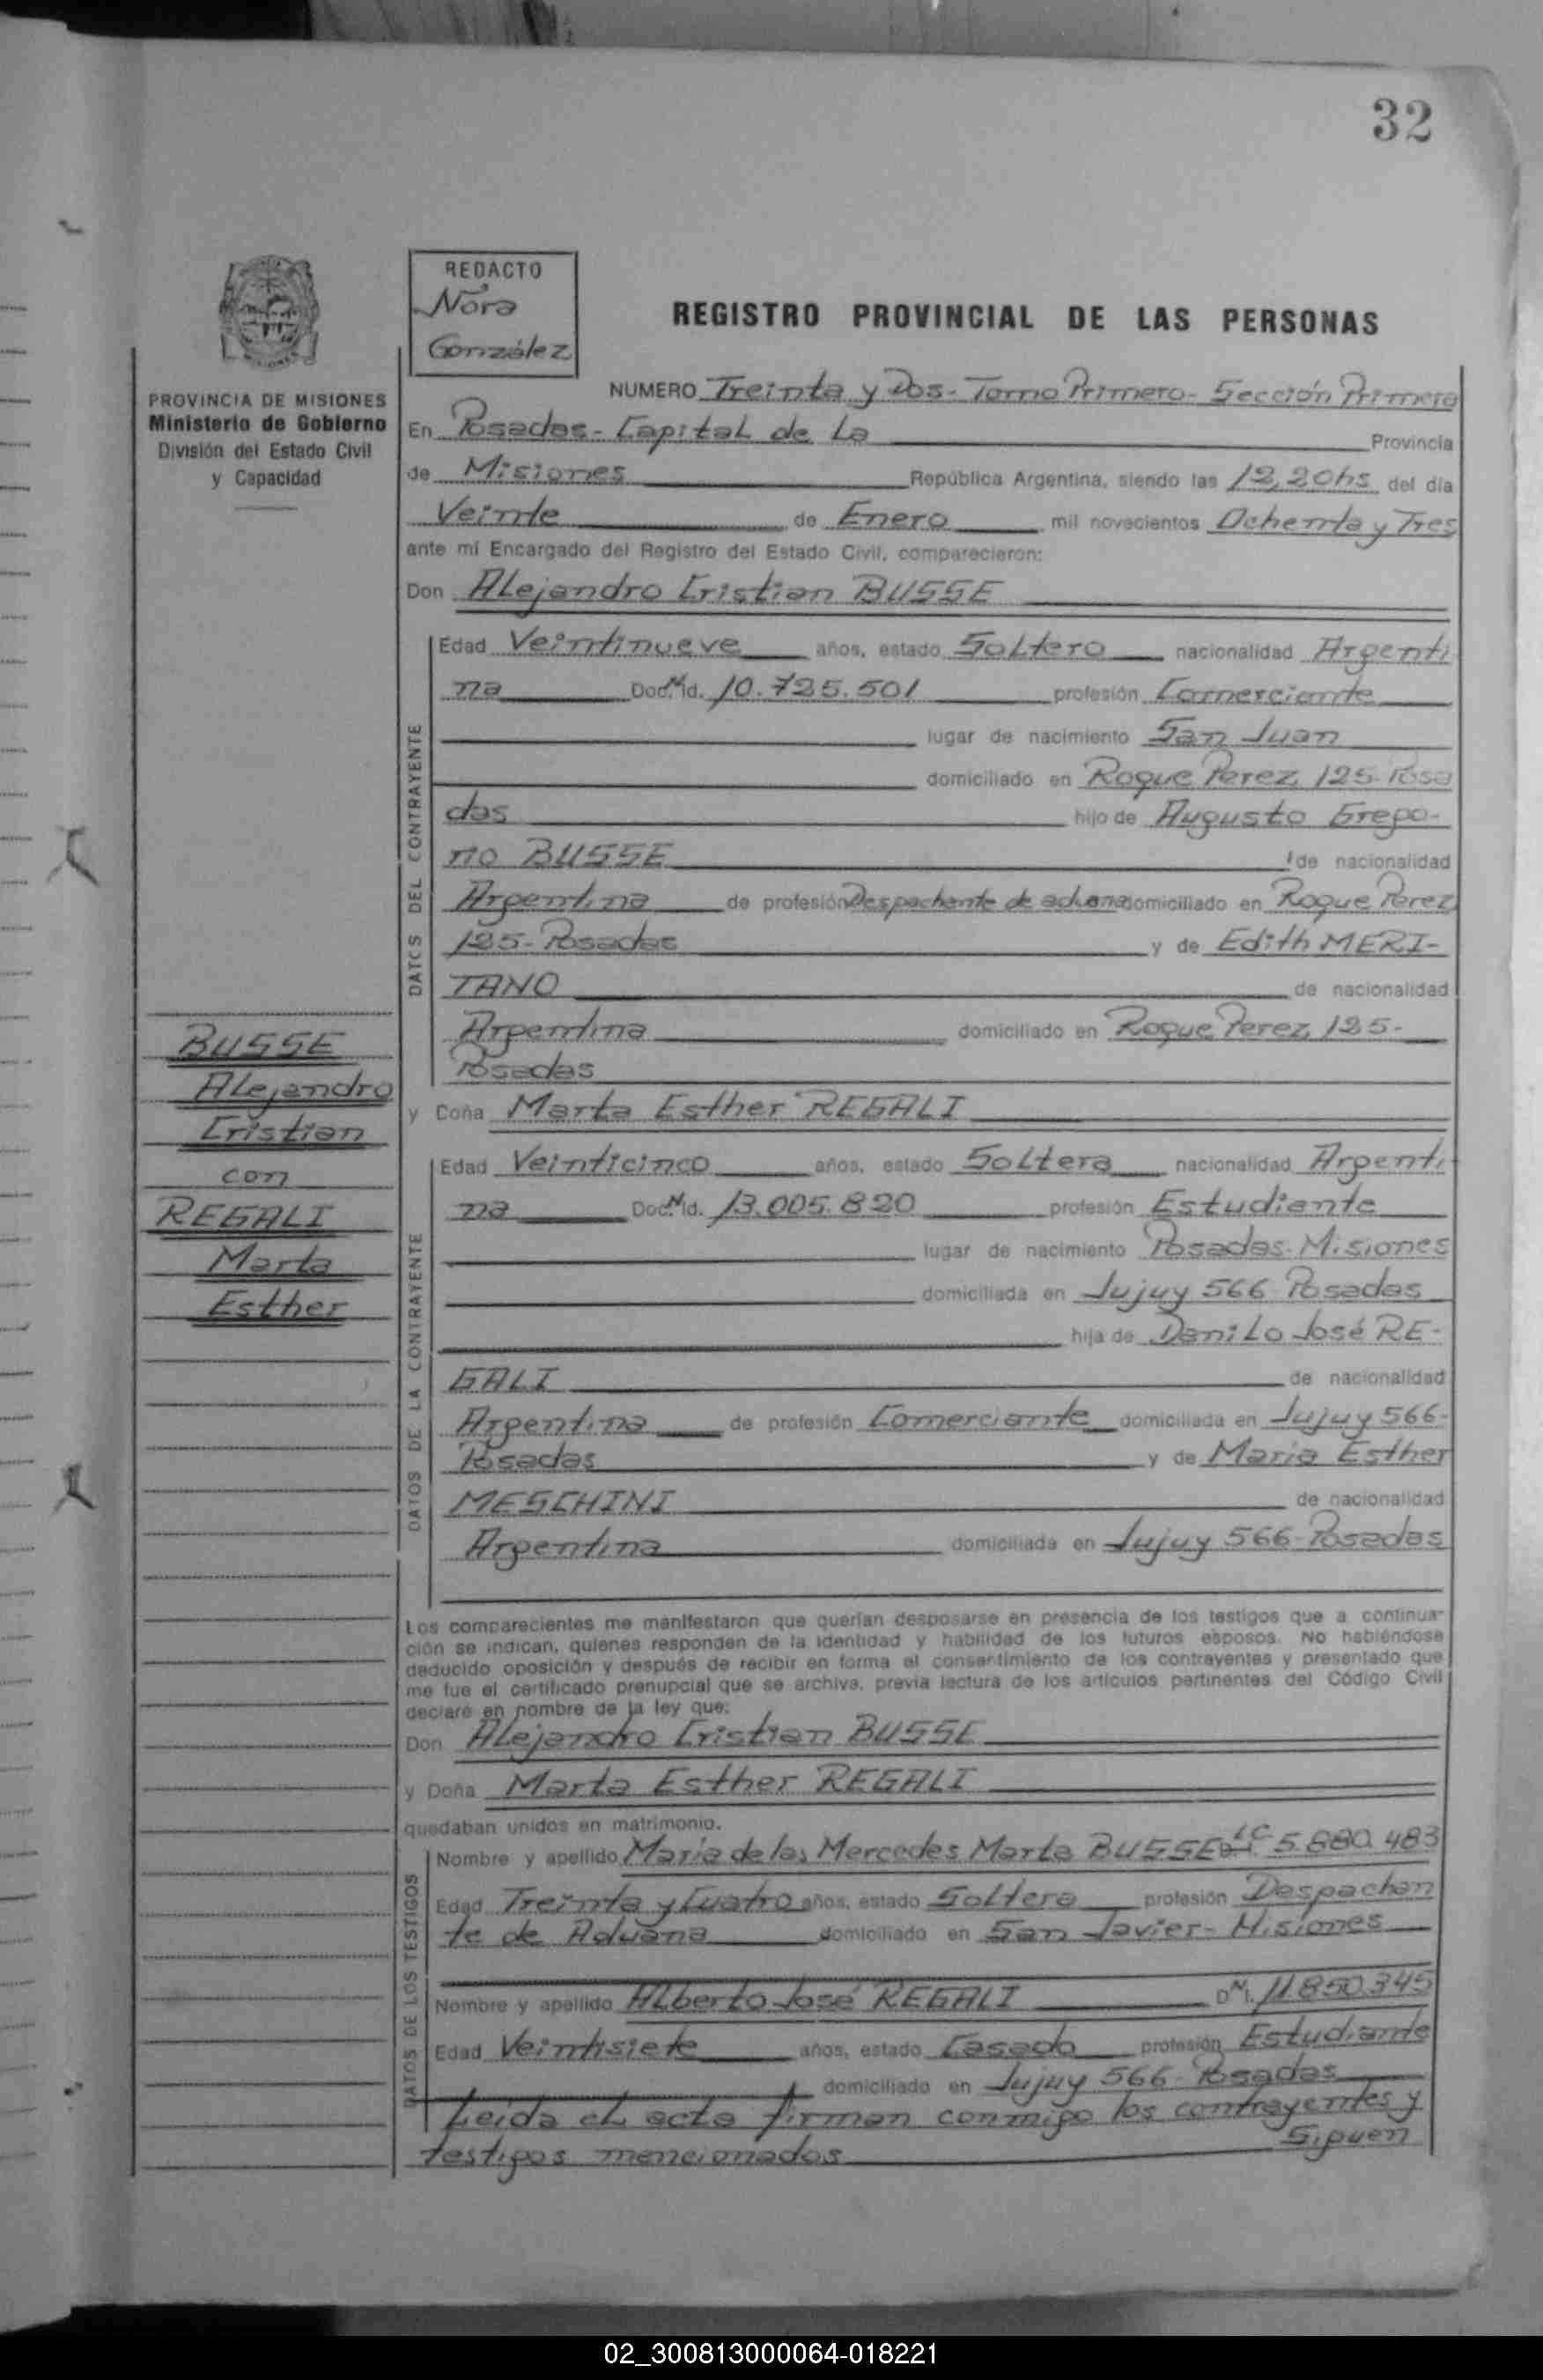 32
REDACTO
Nora
González
REGISTRO PROVINCIAL DE LAS PERSONAS
PROVINCIA DE MISIONES
Ministerio de Gobierno
División del Estado Civil
y Capacidad
NUMERO Treinta y Dos - Tomo Primero - Sección Primera
En Posadas - Capital de La Provincia
de Misiones República Argentina, siendo las 12,20hs del día
Veinte de Enero mil novecientos Ochenta y Tres
ante mí Encargado del Registro del Estado Civil, comparecieron:
Don Alejandro Cristian BUSSE
DATOS DEL CONTRAYENTE
Edad Veintinueve años, estado Soltero nacionalidad Argenti
na Doc.N.Id. 10.725.501 profesión Comerciante
lugar de nacimiento San Juan
domiciliado en Roque Perez 125 Posa
das hijo de Augusto Grego-
rio BUSSE de nacionalidad
Argentina de profesión Despachante de aduana domiciliado en Roque Perez
125 - Posadas y de Edith MERI-
TANO de nacionalidad
Argentina domiciliado en Roque Perez 125 -
Posadas
BUSSE
Alejandro
Cristian
con
REGALI
Marta
Esther
y Doña Marta Esther REGALI
DATOS DE LA CONTRAYENTE
Edad Veinticinco años, estado Soltera nacionalidad Argenti
na Doc.N.Id. 13.005.820 profesión Estudiante
lugar de nacimiento Posadas - Misiones
domiciliada en Jujuy 566 Posadas
hija de Danilo José RE-
GALI de nacionalidad
Argentina de profesión Comerciante domiciliada en Jujuy 566 -
Posadas y de Maria Esther
MESCHINI de nacionalidad
Argentina domiciliada en Jujuy 566 - Posadas
Los comparecientes me manifestaron que querían desposarse en presencia de los testigos que a continua-
ción se indican, quienes responden de la identidad y habilidad de los futuros esposos. No habiéndose
deducido oposición y después de recibir en forma el consentimiento de los contrayentes y presentado que
me fue el certificado prenupcial que se archiva, previa lectura de los artículos pertinentes del Código Civil
declaré en nombre de la ley que:
Don Alejandro Cristian BUSSE
y Doña Marta Esther REGALI
quedaban unidos en matrimonio.
DATOS DE LOS TESTIGOS
Nombre y apellido Maria de las Mercedes Marta BUSSE LC 5.880.483
Edad Treinta y Cuatro años, estado Soltera profesión Despachan
te de Aduana domiciliado en San Javier - Misiones
Nombre y apellido Alberto José REGALI DNI. 11.850.345
Edad Veintisiete años, estado Casado profesión Estudiante
domiciliado en Jujuy 566 - Posadas
Leída el acta firman conmigo los contrayentes y
testigos mencionados Siguen
02_300813000064-018221